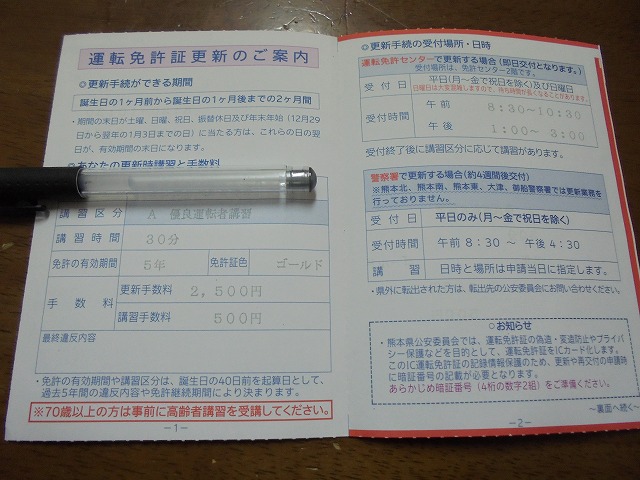 運転免許証更新のご案内
◎更新手続ができる期間
誕生日の1ヶ月前から誕生日の1ヶ月後までの2ヶ月間
・期間の末日が土曜、日曜、祝日、振替休日及び年末年始(12月29
日から翌年の1月3日までの日)に当たる方は、これらの日の翌
日が、有効期間の末日になります。
◎あなたの更新時講習と手数料
講習区分 A 優良運転者講習
講習時間 30分
免許の有効期間 5年 免許証色 ゴールド
手数料 更新手数料 2,500円
講習手数料 500円
最終違反内容
・免許の有効期間や講習区分は、誕生日の40日前を起算日として、
過去5年間の違反内容や免許継続期間により決まります。
※70歳以上の方は事前に高齢者講習を受講してください。
-1-
◎更新手続の受付場所・日時
運転免許センターで更新する場合(即日交付となります。)
受付場所は、免許センター2階です。
受付日 平日(月~金で祝日を除く)及び日曜日
日曜日は大変混雑しますので、待ち時間が長くなることがあります。
受付時間 午前 8:30~10:30
午後 1:00~ 3:00
受付終了後に講習区分に応じて講習があります。
警察署で更新する場合(約4週間後交付)
※熊本北、熊本南、熊本東、大津、御船警察署では更新業務を
行っておりません。
受付日 平日のみ(月~金で祝日を除く)
受付時間 午前8:30 ~ 午後4:30
講習 日時と場所は申請当日に指定します。
・県外に転出された方は、転出先の公安委員会にお問い合わせください。
○お知らせ
・熊本県公安委員会では、運転免許証の偽造・変造防止やプライバ
シー保護などを目的として、運転免許証をICカード化します。
このIC運転免許証の記録情報保護のため、更新や再交付の申請時
に暗証番号の記載が必要となります。
あらかじめ暗証番号(4桁の数字2組)をご準備ください。
~裏面へ続く~
-2-